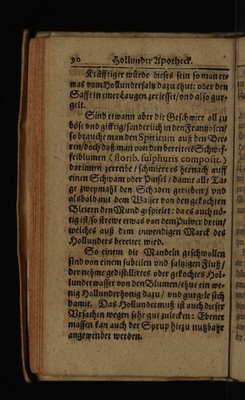 90 Hollunder Apotheck.
Kräfftiger würde dieses sein so man et-
was vom Hollundersaltz dazu thut: oder den
Safft in einer Laugen zerlesset/ und also gur-
gelt.
Sind etwann aber die Geschwier all zu
böse und gifftig/sonderlich in den Frantzosen/
so brauche man den Spiritum auß den Bee-
ren/doch daß man von den bereitete Schwef-
felblumen (florib. sulphuris composit.)
darinnen zertreibe/schmiere es hernach auff
einen Schwam oder Pinsel/damit alle Ta-
ge zweymahl den Schaden gerieben/ und
alsbald mit dem Wasser von den gekochten
Bletern den Mund gespielet: da es auch nö-
tig ist/so strewe etwas von dem Pulver drein/
welches auß dem inwendigen Marck des
Hollunders bereitet wird.
So einem die Mandeln geschwollen
sind von einem subtilen und saltzigen Fluß/
der nehme gedistillirtes oder gekochtes Hol-
lunderwasser von den Blumen/thue ein we-
nig Hollunderhonig dazu/ und gurgele sich
damit. Das Hollundermuß ist auch dieser
Ursachen wegen sehr gut zulecken: Ebener
massen kan auch der Syrup hiezu nutzbahr
angewendet werden.